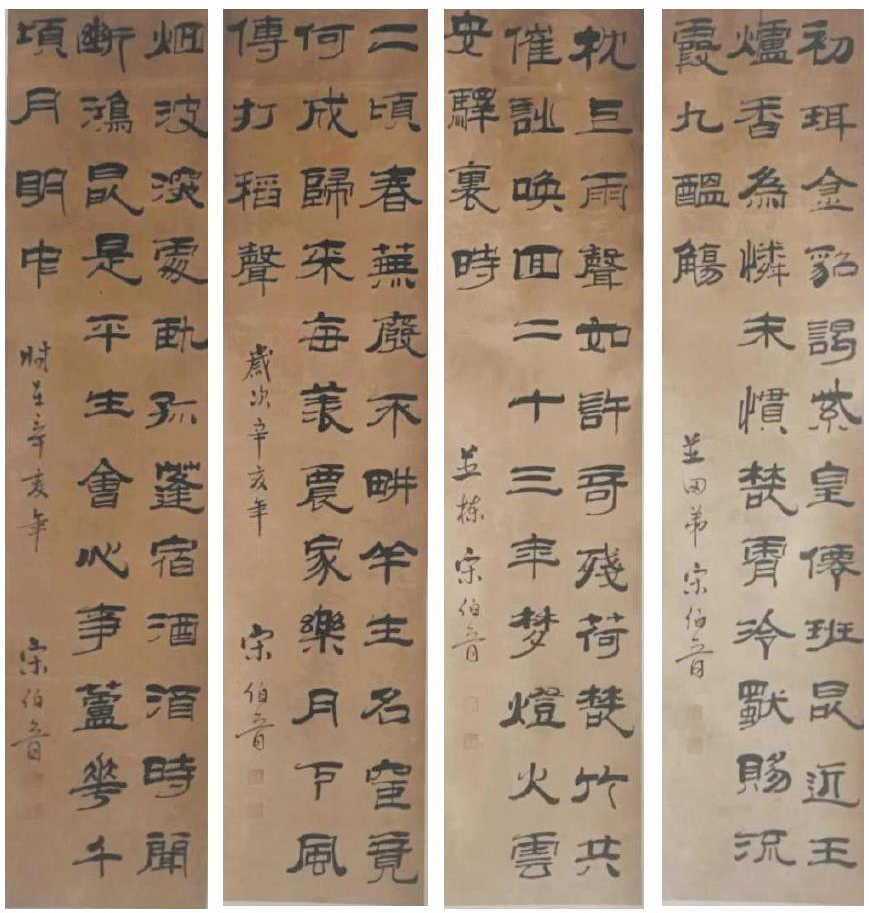 初珥金貂謁紫皇僊班最近玉
爐香為憐未慣叢霄冷獨賜流
霞九醞觴
宋伯魯
枕上雨聲如許奇殘荷叢竹共
催詩喚回二十三年夢燈火雲
安驛裏時
宋伯魯
二頃春蕪廢不畊半生名宦竟
何成歸來每羨農家樂月下風
傳打稻聲
歲次辛亥年
宋伯魯
烟波深處臥孤蓬宿酒醒時聞
斷鴻最是平生會心事蘆花千
頃月明中
時在辛亥年
宋伯魯